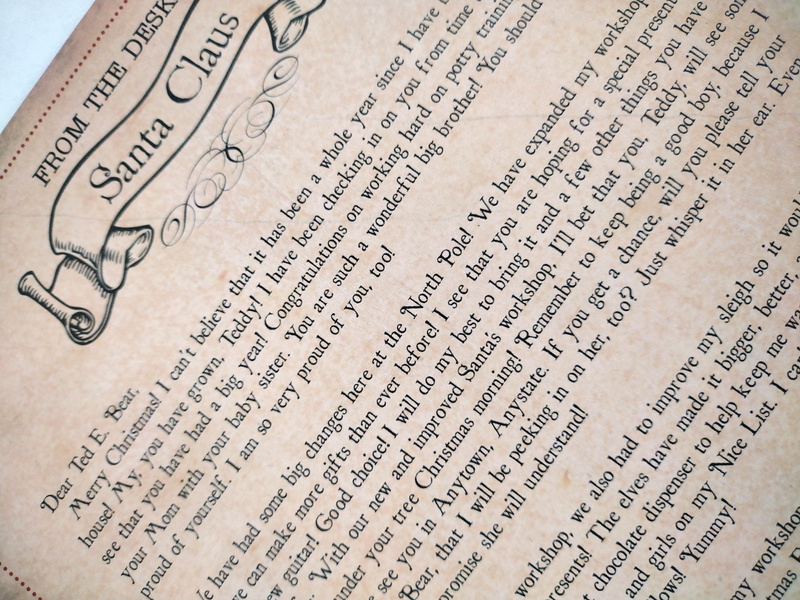 FROM THE DESK
Santa Claus
Dear Ted E. Bear,
Merry Christmas! I can't believe that it has been a whole year since I have
house! My, you have grown, Teddy! I have been checking in on you from time
see that you have had a big year! Congratulations on working hard on potty
your Mom with your baby sister. You are such a wonderful big brother! You should
proud of yourself. I am so very proud of you, too!
have had some big changes here at the North Pole! We have expanded my workshop
can make more gifts than ever before! I see that you are hoping for a special
guitar! Good choice! I will do my best to bring it and a few other things you have
With our new and improved Santa's workshop, I'll bet that you, Teddy, will see
under your tree Christmas morning! Remember to keep being a good boy, because I
see you in Anytown, Anystate. If you get a chance, will you please tell your
Bear, that I will be peeking in on her, too? Just whisper it in her ear. Even
she will understand!
workshop, we also had to improve my sleigh so it
The elves have made it bigger, better,
chocolate dispenser to help keep me
and girls on my Nice List. I
Yummy!
my workshop